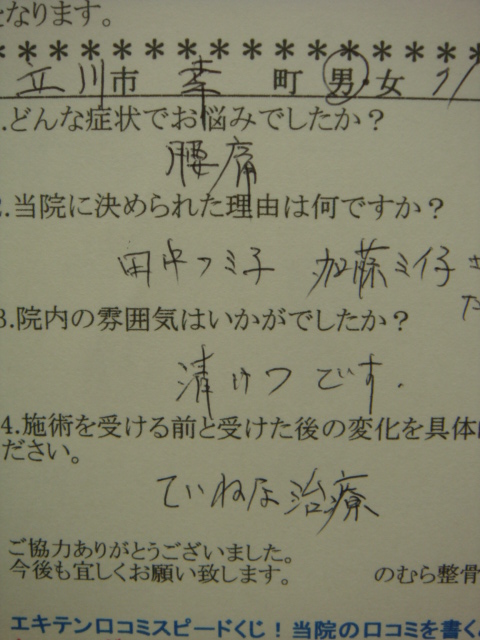 となります。
********************
立川市 幸 町 男・女 71
1.どんな症状でお悩みでしたか?
腰痛
2.当院に決められた理由は何ですか?
田中フミ子 加藤ミイ子さ
た
3.院内の雰囲気はいかがでしたか?
清けつです.
4.施術を受ける前と受けた後の変化を具体
ださい。
ていねな治療
ご協力ありがとうございました。
今後も宜しくお願い致します。 のむら整骨
エキテン口コミスピードくじ!当院の口コミを書く